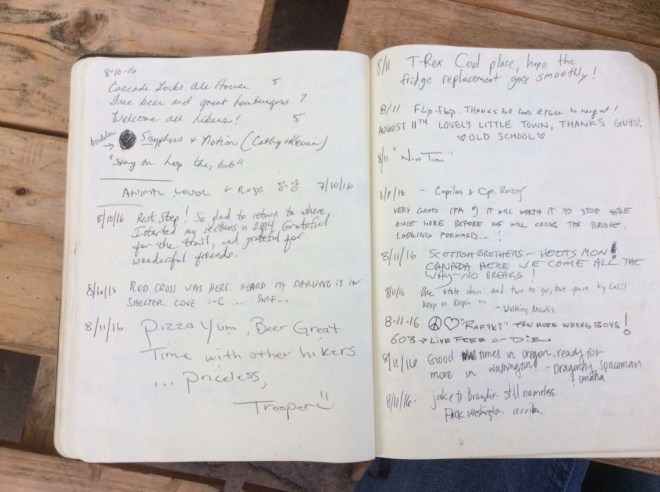 8-10-16
Cascade Locks Ale House 5
Free beer and great hamburgers 7
Welcome all hikers! 5
Sapphire + Notion (Cathy + Kevin)
"Stay on
ANIMAL + 7/10/16
8/10/16 Rest Step! So glad to return to where
I started my sections in 2014. Grateful
for the trail, and grateful for
wonderful friends.
8/10/16 RED CROSS WAS HERE. HEARD MY DARLING IT IN
SHELTER COVE :-C ...
8/11/16 Pizza Yum, Beer Great
Time with other hikers
... priceless,
Trooper
8/11 T-Rex Cool place, hope the
fridge replacement goes smoothly!
8/11 Flip-flop. THANKS
AUGUST 11TH LOVELY LITTLE TOWN, THANKS GUYS!
♡ OLD SCHOOL ♡
8/11
- Copilot & Cpt.
VERY GOOD IPA IT WILL WORTH IT TO STOP HERE
ONCE MORE BEFORE WE WILL CROSS THE BRIDGE.
LOOKING FORWARD...!
8/11/16 SCOTTISH BROTHERS - HOOTS MON!
CANADA HERE WE COME ALL THE
WAY - NO BREAKS!
8/11/16 One state down and two to go, but
Keep on Keepin on - Walking
8-11-16 ☮♡ "RAFIKI" FEW MORE BOYS!
603 → LIVE FREE OR DIE.
8/11/16 Good times in oregon, ready for
more in washington - Dragonfly, spaceman
& omaha
8/11/16 - jake & Brandie. still nameless.
washington. arriba.